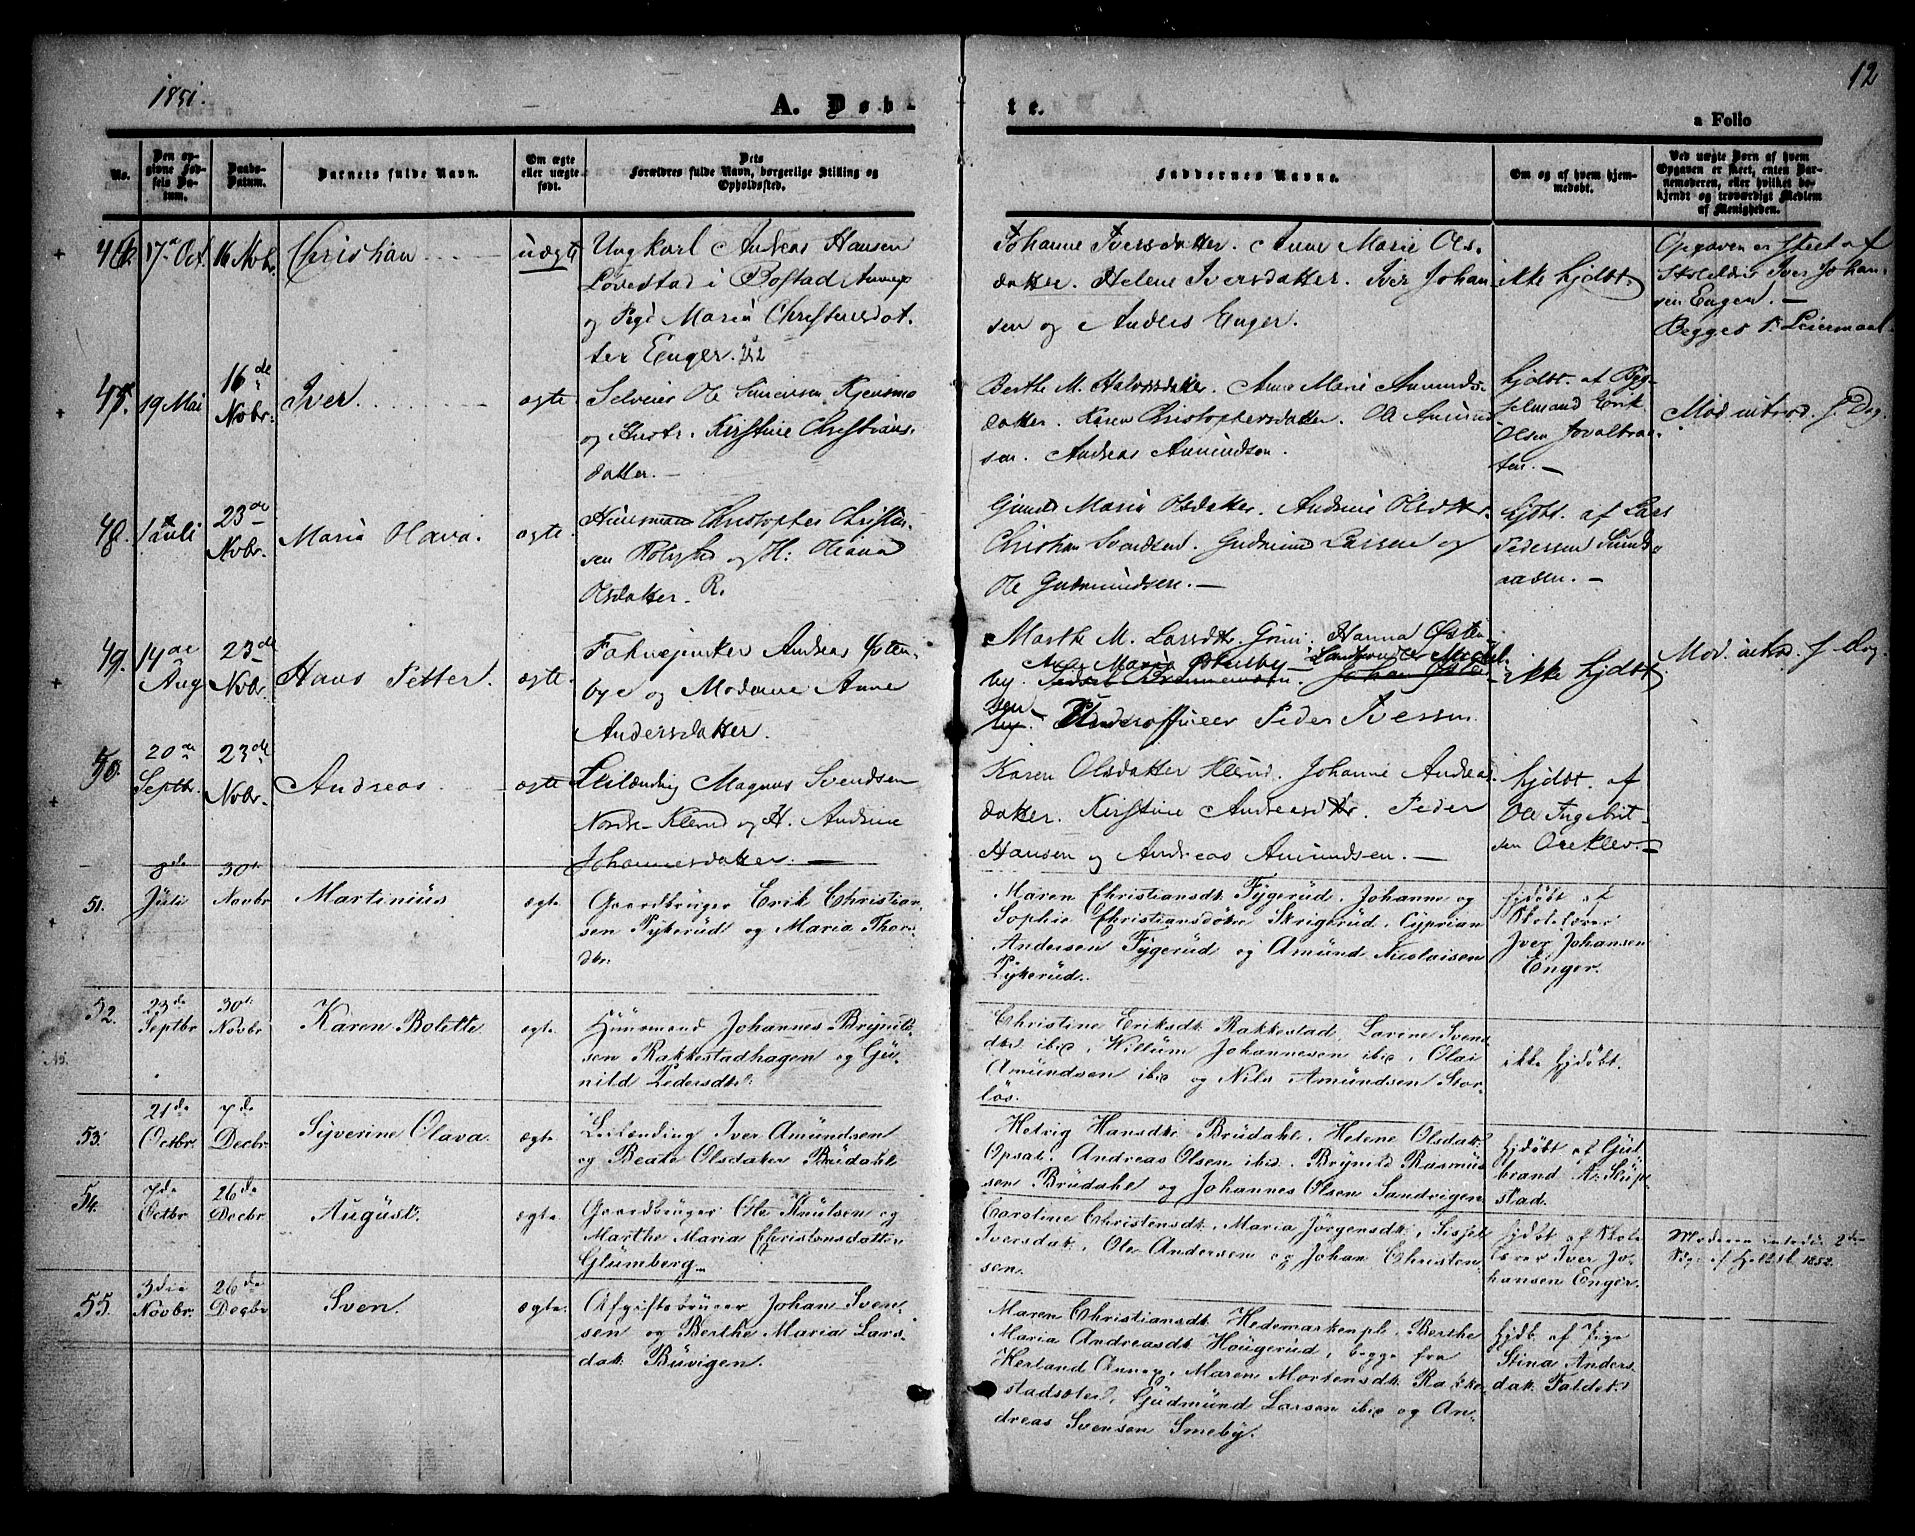 1851.
12
A. Døb-
te.
a Folio
No.
Den op-
givne Fød-
sels Da-
tum.
Daabs-
Datum.
Barnets fulde Navn.
Om ægte
eller uægte
født.
Dets
Forældres fulde Navn, borgerlige Stilling og
Opholdssted.
Faddernes Navne.
Om og af hvem hjem-
medøbt.
Ved uægte Børn af hvem
Opgaven er skeet, enten Bar-
nemoderen, eller hvilket be-
kjendt og troværdigt Medlem
af Menigheden.
46.
17de Oct.
16 Novbr.
Christian
uægte
Ungkarl Andreas Hansen
Løvestad i Annex
og Pige Maria Christensdat-
ter Enger.
Johanne Iversdatter. Anne Marie Ols-
datter. Helene Iversdatter. Iver Johan-
sen og Anders Enger.
ikke hjdbt.
Opgaven er skeet af
Iver Johan-
sen Engen.
Begges 1. Leiermaal.
19 Mai
16de
Novbr.
Iver
ægte.
Selveier Ole Simensen
og Hustr. Kirstine Christians-
datter.
Berthe M. Halvorsdatter. Anne Marie Amunds-
datter. Karen Christophersdatter. Ole Amund-
sen. Andreas Amundsen.
hjdbt. af
Erik
Olsen
ten.
Mod. introd. s. Dag
48.
Juli
23de
Novbr.
Maria Olava.
ægte.
Huusmand Christopher Christian-
sen og H: Oleana
Olsdatter. R.
Maria Olsdatter. Andrine Olsdatter.
Christian Svendsen. Gudmund Larsen og
Ole Gudmundsen.
hjdbt. af Lars
Pedersen Sunds-
aasen.
49.
14de
Aug
23de
Novbr.
Hans Petter.
ægte.
Fahnejunker Andreas Østen-
bye og Madame Anne
Andersdatter.
Marthe M. Larsdtr. Hanna Østen-
by.
Underofficeer Peder Iversen
ikke hjdbt
Mod. introd. s. Dag
50.
20de
Septbr.
23de
Novbr.
Andreas
ægte
Leilænding Magnus Svendsen
Nordre Klerud og H. Andrine
Johannesdatter.
Karen Olsdatter Klerud. Johanne Andreas-
datter. Kirstine Andreasdtr. Peder
Hansen og Andreas Amundsen.
hjdbt. af
Ole Ingebrit-
sen
51.
8de
Juli
30te
Novbr
Martinius
ægte
Gaardbruger Erik Christian-
sen Tykerud og Maria Thors-
dtr.
Maren Christiansdt. Tygerud, Johanne og
Sophie Christiansdøtre Skrigerud, Cyprian
Andersen Tygerud og Amund Nicolaisen
Tykerud.
hjdøbt af
Skolelærer
Iver Johansen
Enger.
52.
23de
Septbr.
30te
Novbr
Karen Bolette
ægte
Huusmand Johannes Brynild-
sen Rakkestadhagen og Gu-
nild Pedersdt.
Christine Eriksdt. Rakkestad, Lovine Svens-
dt. ibid, Willum Johannesen ibid, Olai
Amundsen ibid og Nils Amundsen Stor-
løs.
ikke hjdøbt.
53.
21de
Octbr.
7de
Decbr.
Syverine Olava.
ægte.
Leilending Iver Amundsen
og Beate Olsdatter Brudahl.
Helvig Hansdt. Brudahl. Helene Olsdat.
Opsal. Andreas Olsen ibid. Brynild Rasmus-
sen Brudahl og Johannes Olsen Sandvigen
hjdøbt af Gul-
brand A.
stad.
54.
7de
Octbr.
26de
Decbr.
August.
ægte.
Gaardbruger Ole Knudsen og
Marthe Maria Christensdatter
Glumberg.
Caroline Christensdt., Maria Jørgensdt., Sissel
Iversdat., Ole Andersen og Johan Christen-
sen.
hjdøbt af Skole-
lærer Iver Jo-
hansen Enger.
Moderen introd. 2den
1852.
55.
3die
Novbr.
26de
Decbr
Sven.
ægte.
Afgiftsbruger Johan Sven-
sen og Berthe Maria Lars-
dat. Buvigen.
Maren Christiansdt. Hedemarkenpl. Berthe
Maria Andreasdt. Hougerud, begge fra
Herland Annex, Maren Mortensdt. Rakke-
stadsæter, Gudmund Larsen ibid og An-
dreas Svensen Smeby.
hjdb. af Pige
Stina Anders-
dat. Faldet.